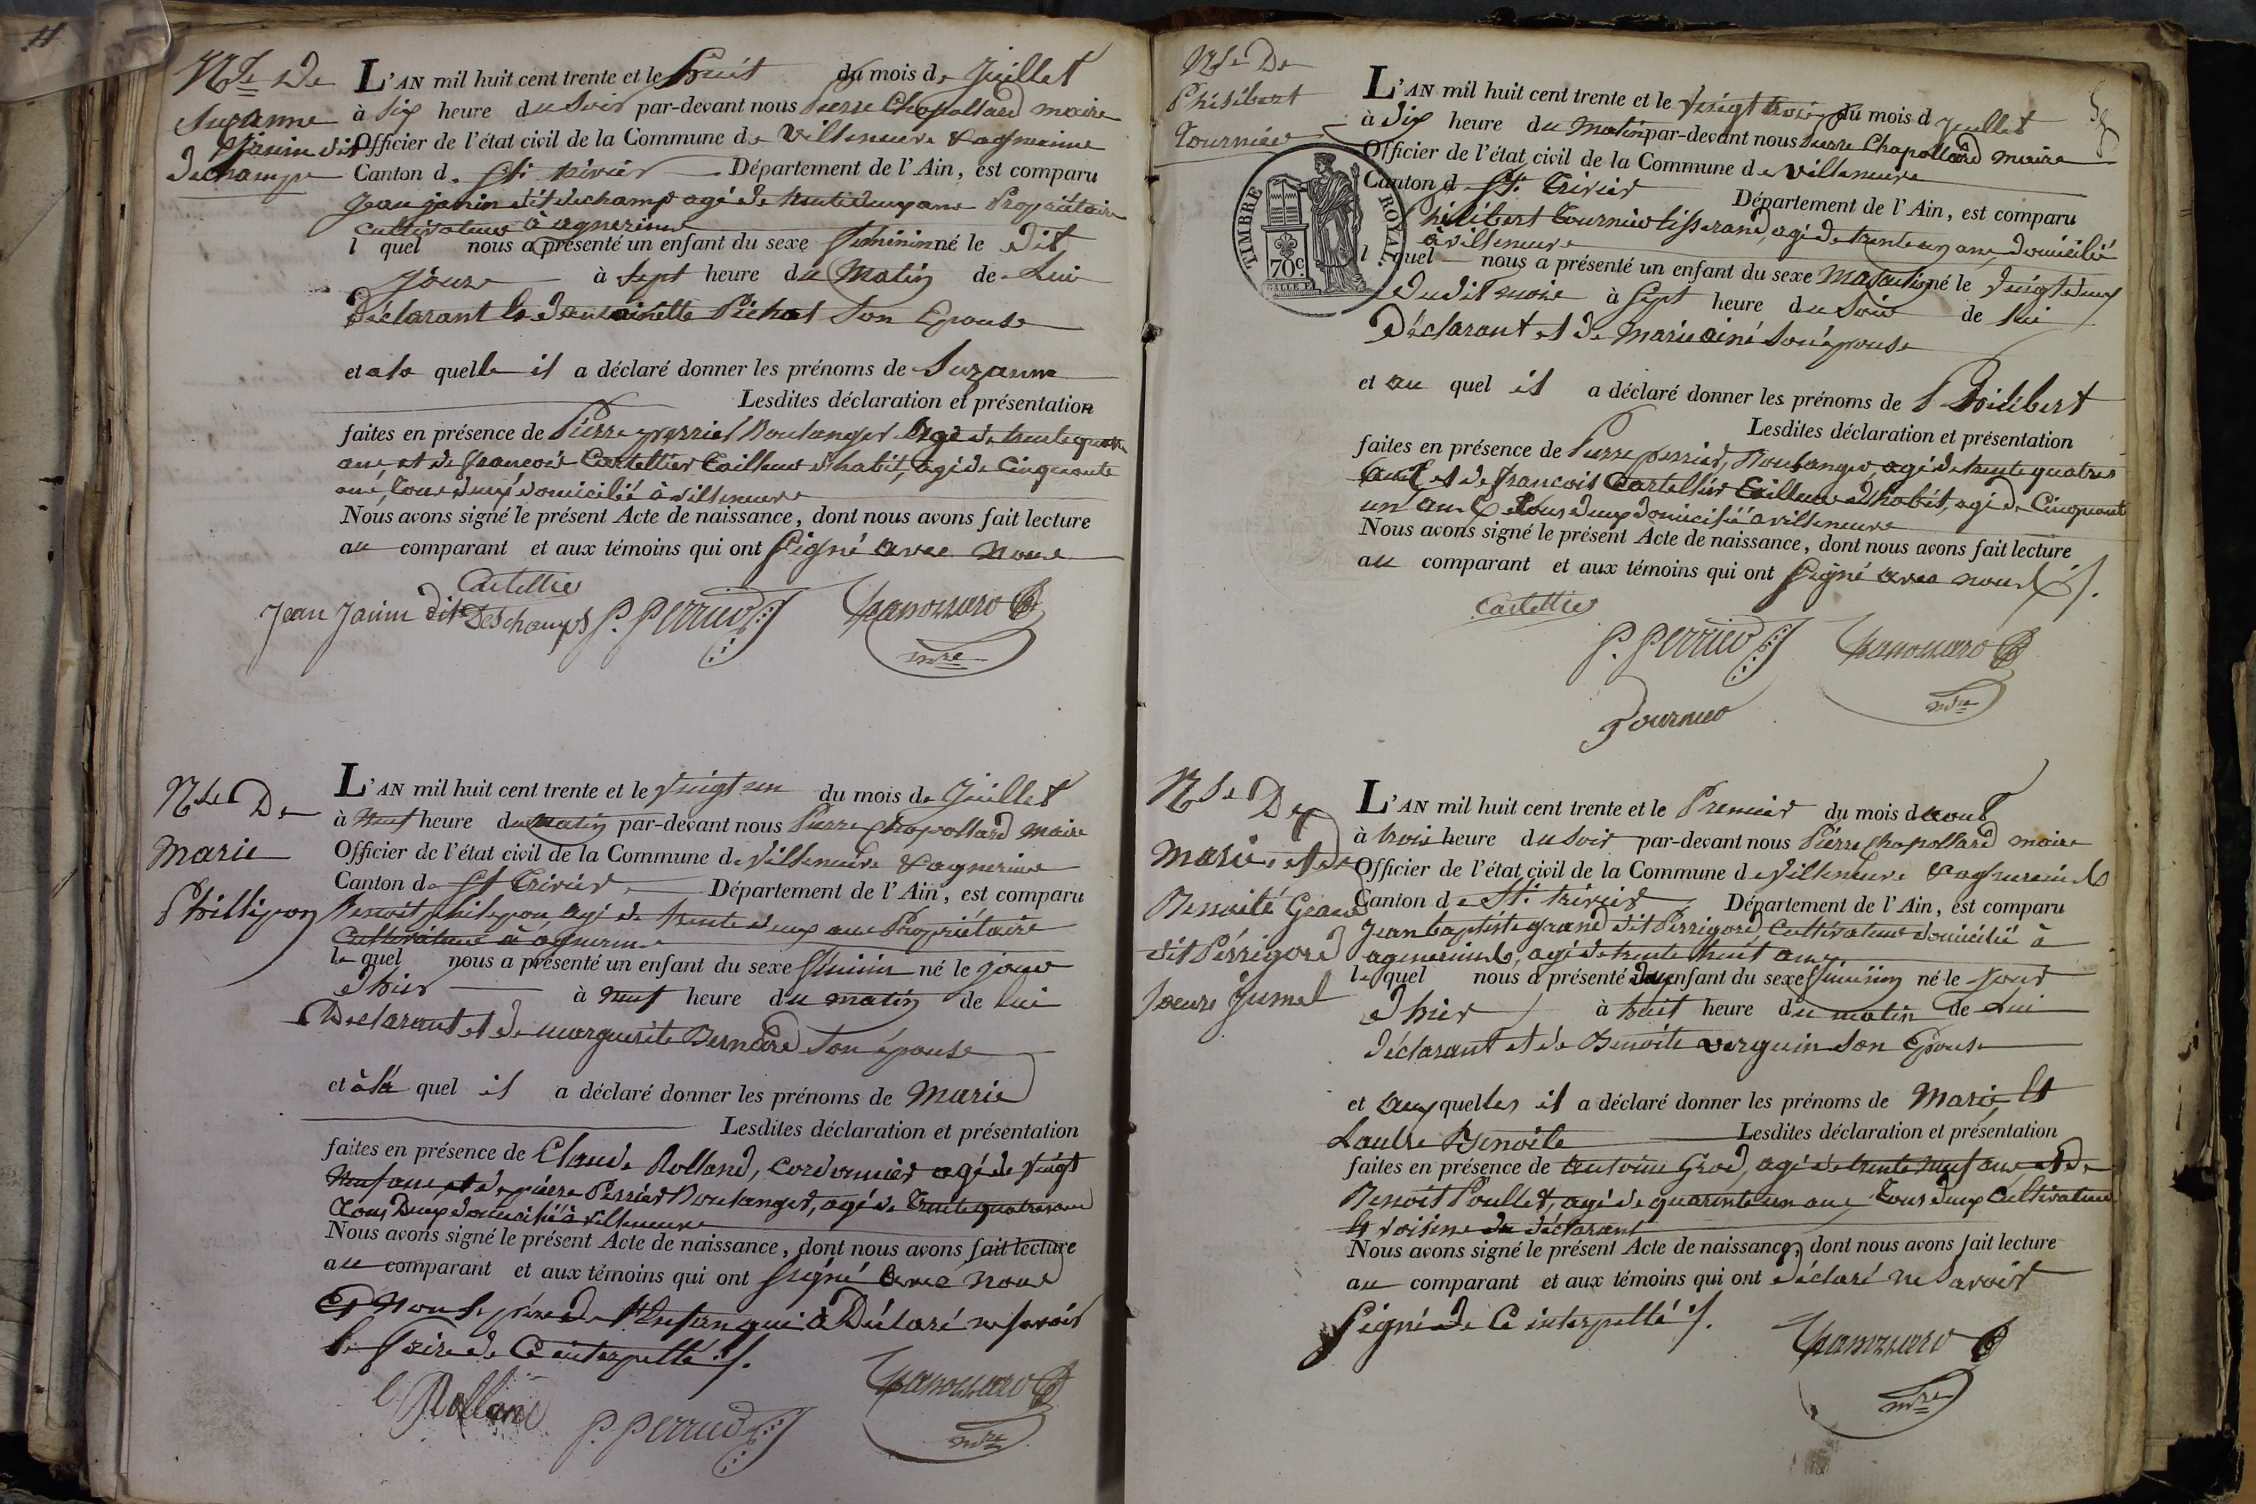 Nce De
Suzanne
Janin dit
Dechamps
L'AN mil huit cent trente et le huit du mois de Juillet
à Six heure du Soir par-devant nous Pierre Chapollard maire
Officier de l'état civil de la Commune de villeneuve & agnereine
Canton de St. trivier Département de l'Ain, est comparu
Jean janin dit dechamp agé de trentedeux ans Propriétaire
cultivateur à agnereine
l quel nous a présenté un enfant du sexe feminin né le dit
jour à Sept heure du Matin de Lui
Déclarant & de antoinette Pichat Son Epouse
et a la quelle il a déclaré donner les prénoms de Suzanne
Lesdites déclaration et présentation
faites en présence de Pierre perrier Boulanger Agé de trente quatre
ans, et de françois Cartellier Tailleur d'habit, agé de Cinquante
ans, tous deux domicilié à villeneuve
Nous avons signé le présent Acte de naissance, dont nous avons fait lecture
au comparant et aux témoins qui ont Signé avec Nous
Cartellier
Jean Janin dit Deschamps P. Perrier
mre
Nce De
Marie
Phillipon
L'AN mil huit cent trente et le vingt un du mois de Juillet
à Neuf heure du matin par-devant nous Pierre Chapollard maire
Officier de l'état civil de la Commune de villeneuve & agnereine
Canton de St Trivier Département de l'Ain, est comparu
Benoit philipon agé de trente deux ans Propriétaire
Cultivateur à agnereine
le quel nous a présenté un enfant du sexe féminin né le jour
d'hier à neuf heure du matin de lui
Déclarant et de marguerite Bernard son épouse
et à la quel il a déclaré donner les prénoms de Marie
Lesdites déclaration et présentation
faites en présence de Claude Rolland, cordonnier agé de vingt
Neuf ans, et de pierre Perrier Boulanger, agé de trente quatre ans
Tous Deux domicilié à villeneuve
Nous avons signé le présent Acte de naissance, dont nous avons fait lecture
au comparant et aux témoins qui ont Signé avec nous
Et Non le père de l'Enfan qui à Déclaré ne savoir
le faire de Ce interpellé ./.
C Rolland
P. Perrier
mre
Nce De
Philibert
Tournier
TIMBRE ROYAL.
70c
L'AN mil huit cent trente et le vingt trois du mois d Juillet
à dix heure du Matin par-devant nous Pierre Chapollard maire
Officier de l'état civil de la Commune de villeneuve
Canton de St. Trivier Département de l'Ain, est comparu
Philibert Tournier tisserand, agé de trente un ans, domicilié
à villeneuve
l quel nous a présenté un enfant du sexe Masculin né le vingt deux
dudit mois à Sept heure du Soir de lui
Déclarant et de Marie ainé son épouse
et au quel il a déclaré donner les prénoms de Philibert
Lesdites déclaration et présentation
faites en présence de Pierre perrier, Boulanger, agé de trente quatre
ans et de francois Cartellier Tailleur d'habit, agé de Cinquante
un ans & tous deux domicilié à villeneuve
Nous avons signé le présent Acte de naissance, dont nous avons fait lecture
au comparant et aux témoins qui ont Signé avec nous ./.
Cartellier
P. Perrier
mre
Tournier
Nce De
Marie et de
Benoite Grand
dit Périgord
Soeurs Jumel
L'AN mil huit cent trente et le Premier du mois d aout
à trois heure du Soir par-devant nous Pierre Chapollard maire
Officier de l'état civil de la Commune de villeneuve & agnereins
Canton de St. trivier Département de l'Ain, est comparu
Jean baptiste grand dit Périgord Cultivateur domicilié à
agnereins, agé de trente huit ans,
le quel nous a présenté deux enfant du sexe féminin né le jour
d'hier à huit heure du matin de Lui
déclarant et de Benoite verguin son Epouse
et aux quelles il a déclaré donner les prénoms de Marie et
L'autre Benoite Lesdites déclaration et présentation
faites en présence de antoine Grod, agé de trente neuf ans et de
Benoit Poullet, agé de quarante un ans Tous deux Cultivateur
et voisins du déclarant
Nous avons signé le présent Acte de naissance, dont nous avons fait lecture
au comparant et aux témoins qui ont déclaré ne Savoir
Signé de Ce interpellé ./.
mre